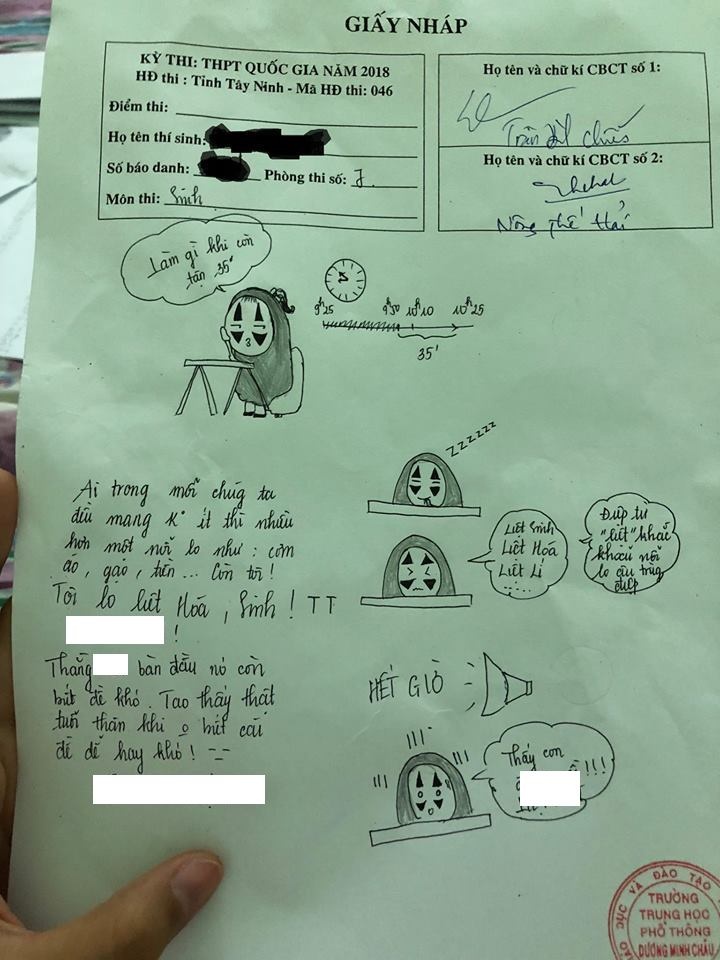 GIẤY NHÁP
KỲ THI: THPT QUỐC GIA NĂM 2018
HĐ thi : Tỉnh Tây Ninh - Mã HĐ thi: 046
Điểm thi:
Họ tên thí sinh:
Số báo danh: Phòng thi số: 7.
Môn thi: Sinh
Họ tên và chữ kí CBCT số 1:
Họ tên và chữ kí CBCT số 2:
Nông Thế Hải
Làm gì khi còn
tận 35'
9h25 9h50 10h10 10h25
35'
Ai trong mỗi chúng ta
đều mang K° ít thì nhiều
hơn một nỗi lo như : cơm
áo, gạo, tiền ... Còn tôi!
Tôi lo liệt Hóa, Sinh ! TT
!
Thằng bàn đầu nó còn
biết đề khó. Tao thấy thật
tuổi thân khi o biết cái
đề dễ hay khó! -_-
Zzzzzz
Liệt Sinh
Liệt Hóa
Liệt Lí
......
Đúp tư
"liệt" khắc
khoải nỗi
lo câu trùng
đúp
HẾT GIỜ
Thấy con
!!!
GIÁO DỤC VÀ ĐÀO TẠO
TRƯỜNG
TRUNG HỌC
PHỔ THÔNG
DƯƠNG MINH CHÂU